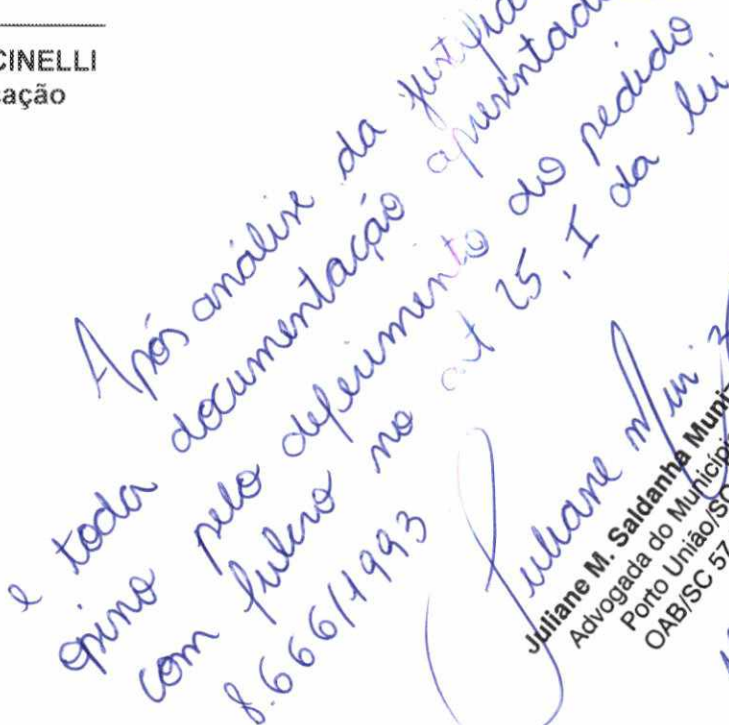 CINELLI
ação
Após análise da justifica
e toda documentação apresentada
opino pelo deferimento do pedido
com fulcro no art 25, I da lei
8.666/1993
Juliane Muniz
Juliane M. Saldanha Muniz
Advogada do Município
Porto União/SC
OAB/SC 57